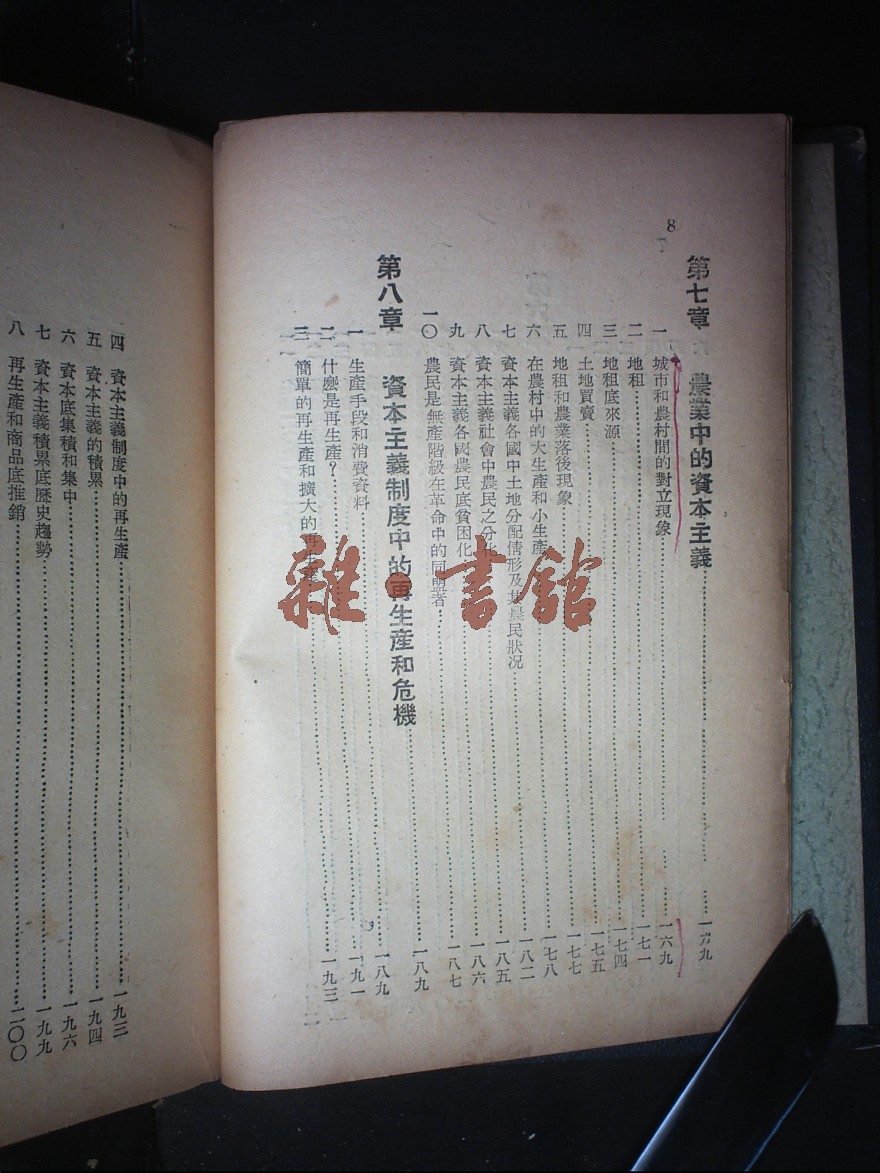 8
第七章 農業中的資本主義……一六九
一 城市和農村間的對立現象……一六九
二 地租……一七一
三 地租底來源……一七四
四 土地買賣……一七五
五 地租和農業落後現象……一七七
六 在農村中的大生產和小生產……一七八
七 資本主義各國中土地分配情形及其農民狀況……一八二
八 資本主義社會中農民之分化……一八五
九 資本主義各國農民底貧困化……一八六
一〇 農民是無產階級在革命中的同盟者……一八七
第八章 資本主義制度中的再生產和危機……一八九
一 生產手段和消費資料……一八九
二 什麼是再生產?……一九一
三 簡單的再生產和擴大的再生產……一九三
四 資本主義制度中的再生產……一九三
五 資本主義的積累……一九四
六 資本底集積和集中……一九六
七 資本主義積累底歷史趨勢……一九九
八 再生產和商品底推銷……二〇〇
雜·書館